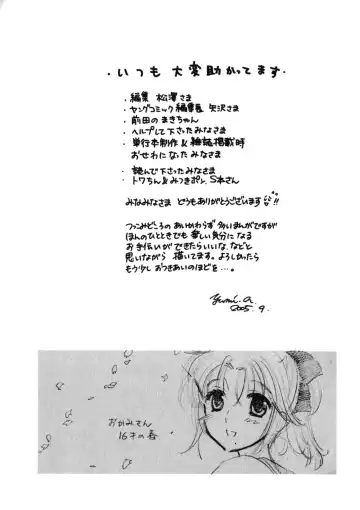 ・いつも大変助かってます・
・編集 松澤さま
・ヤングコミック編集長 矢沢さま
・前田のまきちゃん
・ヘルプして下さったみなさま
・単行本制作&雑誌掲載時
おせわになったみなさま
・読んで下さったみなさま
・トワちん&みつきポン、S本さん
みなみなさま どうもありがとうございます!!
ツッコミどころのあいかわらず多いまんがですが
ほんのひとときでも楽しい気分になる
お手伝いができたらいいな、などと
思いながら描いてます。よろしかったら
もう少しおつきあいのほどを…。
2005.9.
おかみさん
16才の春